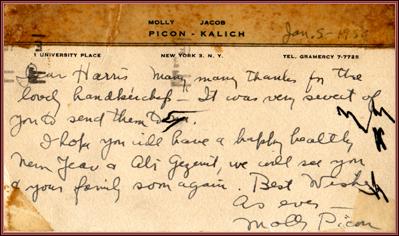 MOLLY JACOB
PICON - KALICH
Jan. 5-
1 UNIVERSITY PLACE NEW YORK 3, N. Y. TEL. GRAMERCY 7-7725
Dear Harris Many, many thanks for the
lovely handkerchief — It was very sweet of
you to send them
I hope you will have a happy healthy
New Year & Abi Gezunt, we will see you
& your family soon again. Best Wishes
As ever —
Molly Picon